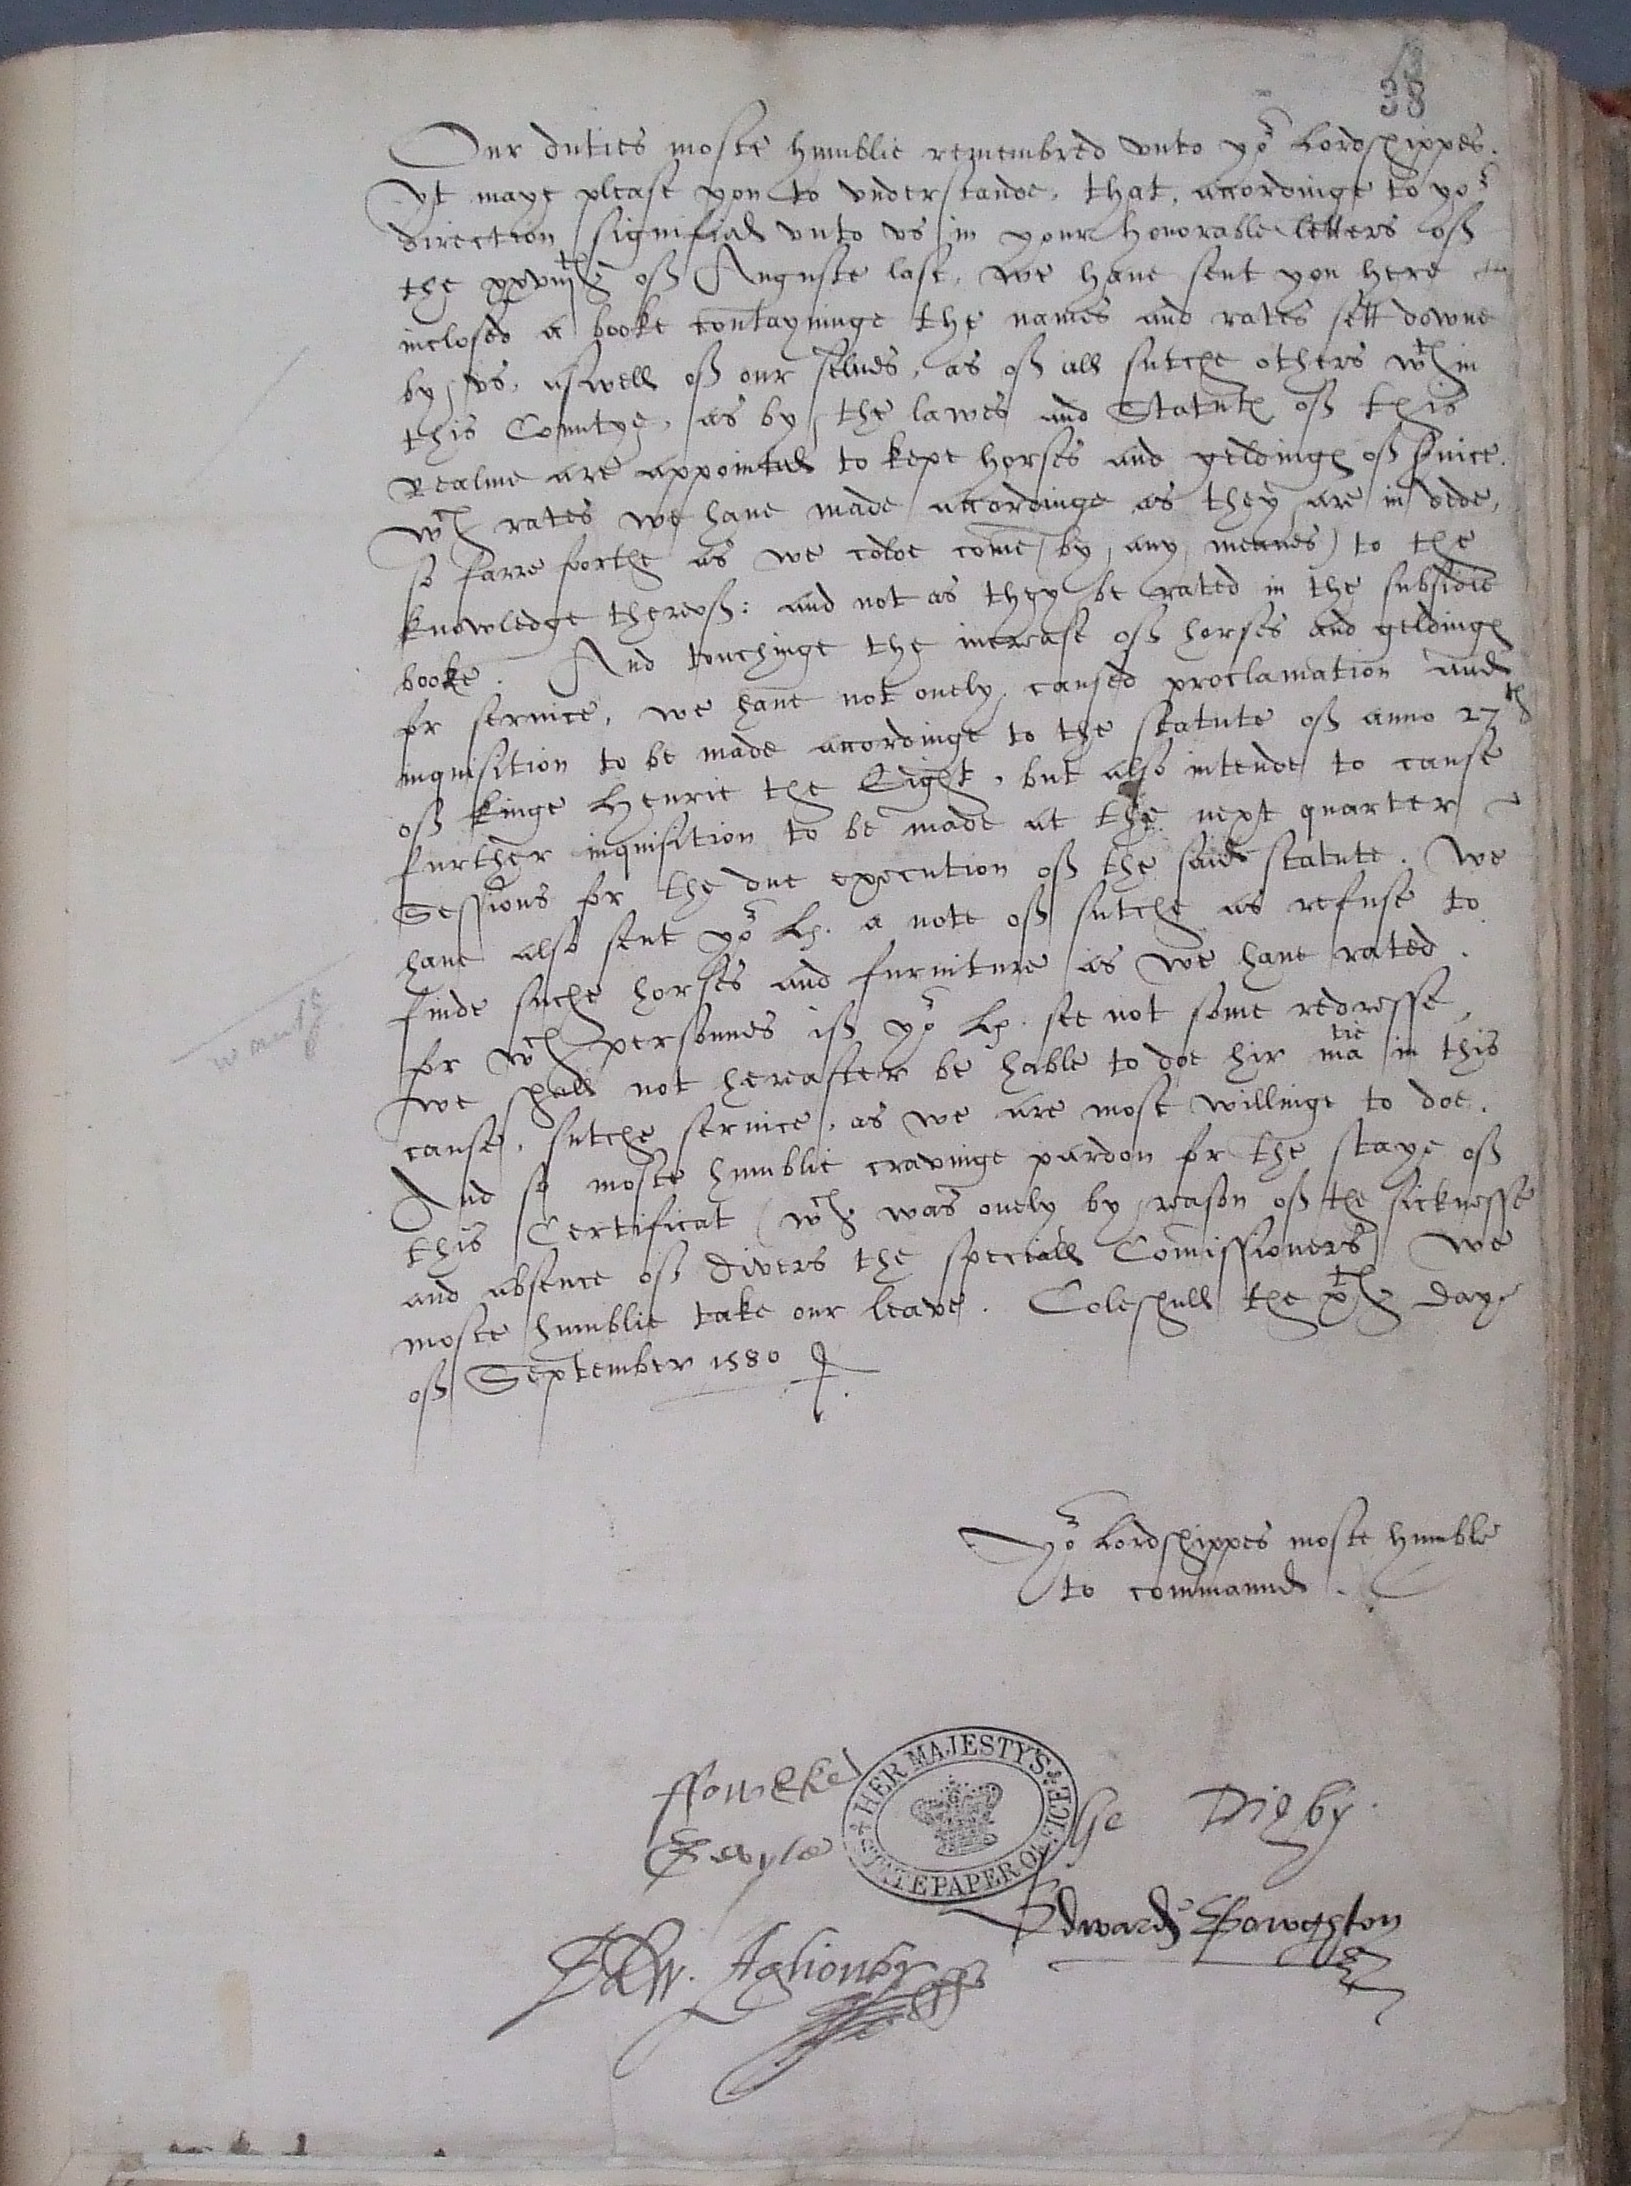 38
Our duties moste humblie remembred vnto yor Lordshippes.
yt maye please you to vnderstande, that, accordinge to yor
direction signified vnto vs in your honorable letters off
the xxviijth off Auguste last, we haue sent you here
inclosed a booke contayninge the names and rates sett downe
by vs, aswell off our selues, as off all sutche others wthin
this Countye, as by the lawes and Statutes off this
Realme are appointed to kepe horses and geldinges off seruice.
wch rates we haue made accordinge as they are in dede,
so farre forthe as we colde come (by any meanes) to the
knowledge thereoff: and not as they be rated in the subsidie
booke. And touchinge the increase off horses and geldinges
for seruice, we haue not onely caused proclamation and
inquisition to be made accordinge to the statute off anno 27th
off kinge Henrie the Eight, but also intende to cause
further inquisition to be made at the next quarter
Sessions for the due execution off the said statute. We
haue also sent yor Lp. a note off sutche as refuse to
finde suche horses and furniture as we haue rated.
for wch personnes iff yor Lp. see not some redresse,
we shall not hereafter be hable to doe hir matie in this
cause, sutche seruice, as we are most willinge to doe.
And so moste humblie cravinge pardon for the staye off
this Certificat (wch was onely by reason off the sicknesse
and absence off divers the speciall Comissioners) We
moste humblie take our leave. Coleshull the xth daye
off September 1580
Yor Lordshippes moste humble
to commaund.
ffowlke
Grevyle
HER MAJESTY'S STATE PAPER OFFICE
Ge Digby.
Edward Bowghton
Edw. Aglionby